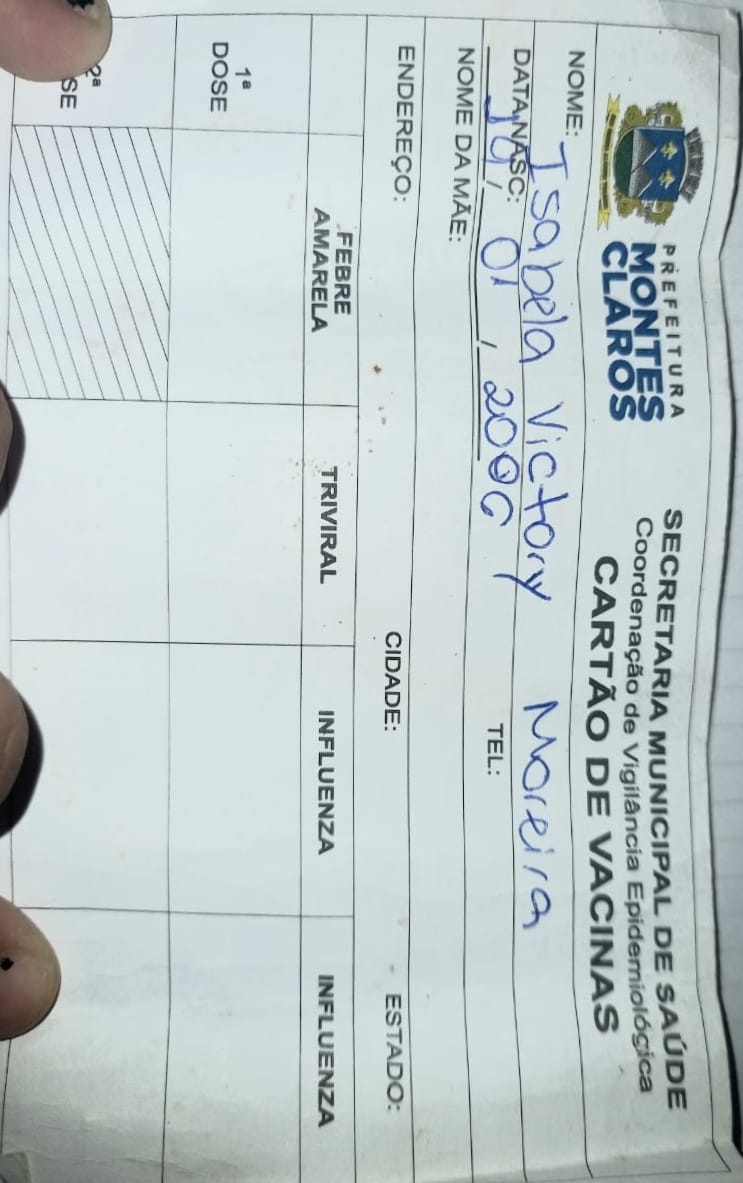 PREFEITURA
MONTES
CLAROS
SECRETARIA MUNICIPAL DE SAÚDE
Coordenação de Vigilância Epidemiológica
CARTÃO DE VACINAS
NOME: Isabela Victory Moreira
DATA NASC: / 01 / 2006 TEL:
NOME DA MÃE:
ENDEREÇO: CIDADE: ESTADO:
FEBRE AMARELA TRIVIRAL INFLUENZA INFLUENZA
1ª
DOSE
2ª
SE